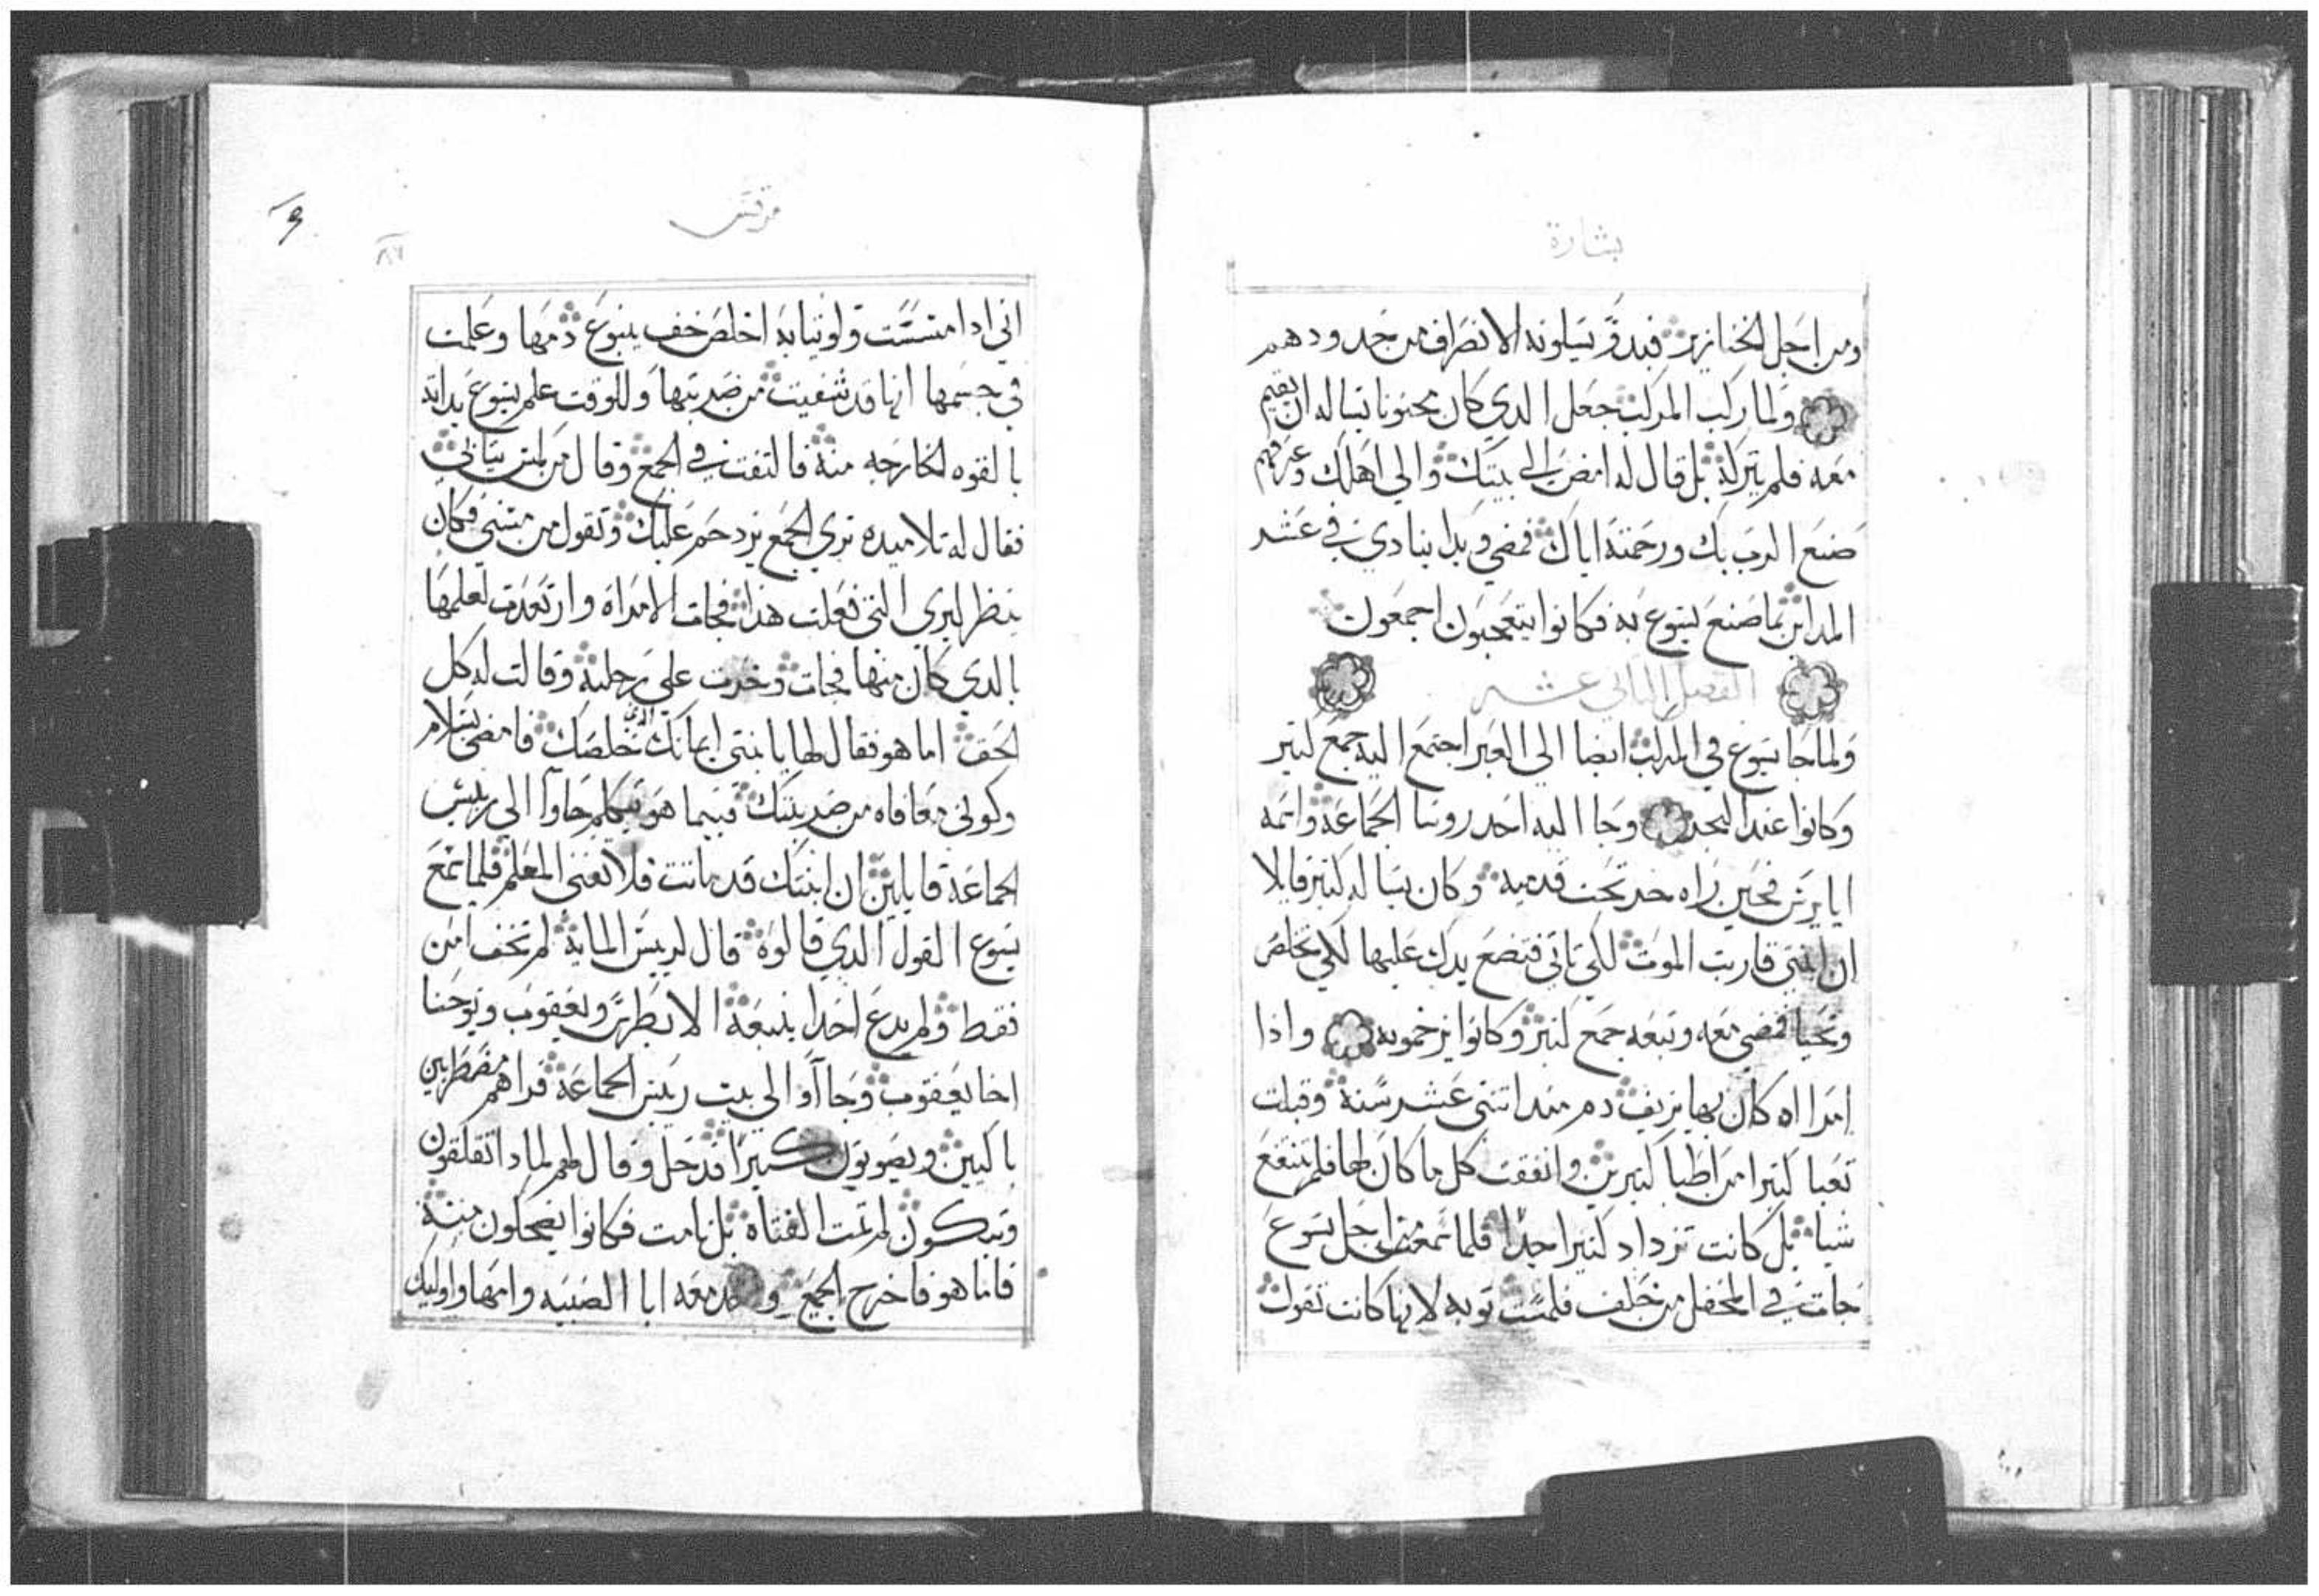 بشارة
ومن اجل الخنازير فبدو يسلونه الانصراف من حدودهم
ولما ركب المركب جعل الدي كان مجنونا يساله ان يقيم
معه فلم يتركه بل قال له امض الي بيتك والي اهلك وعرفهم
صنع الرب بك ورحمته اياك فمضي وبدا ينادي في عشر
المداين بما صنع يسوع به فكانوا يتعجبون اجمعون
الفصل الثاني عشر
ولما جا يسوع في المركب ايضا الي العبر اجتمع اليه جمع كتير
وكانوا عند البحر وجا اليه احد روسا الجماعة واسمه
ايايرس فحين راه خر تحت قدميه وكان يساله كتير قايلا
ان ابنتي قاربت الموت لكي تاتي فتضع يدك عليها لكي تخلص
وتحيا فمضي معه وتبعه جمع كتير وكانوا يزحموه واذا
امراه كان بها نزيف دم مند اتني عشر سنة وقبلت
تعبا كتيرا من اطبا كتيرين وانفقت كل ما كان لها فلم تنتفع
شيا بل كانت تزداد كتيرا جدا فلما سمعت من اجل يسوع
جات في المحفل من خلف فلمست توبه لانها كانت تقول
مرقس
٨٧
اني ادا مسست ولو تيابه اخلص فجف ينبوع دمها وعلمت
في جسمها انها قد شفيت من ضربتها وللوقت علم يسوع بداته
بالقوه الخارجه منه فالتفت في الجمع وقال من لمس تيابي
فقال له تلاميده تري الجمع يزدحم عليك وتقول من مسني فكان
ينظر ليري التي فعلت هذا فجات الامراه وارتعدت لعلمها
بالدي كان منها فجات وخرت علي رجليه وقالت له كل
الحق اما هو فقال لها يا بنتي ايمانك الذي خلصك فامضي بسلام
وكوني معافاه من ضربتك فبينما هو يتكلم جاوا الي رييس
الجماعة قايلين ان ابنتك قد ماتت فلا تعني المعلم فلما سمع
يسوع القول الدي قالوه قال لرييس المايه لم تخف امن
فقط ولم يدع احدا يتبعه الا بطرس ويعقوب ويوحنا
اخا يعقوب وجااوا الي بيت رييس الجماعة فراهم مضطربين
باكيين ويصوتون كتيرا فدخل وقال لهم لمادا تقلقون
وتبكون لم تمت الفتاه بل نامت فكانوا يضحكون منه
فاما هو فاخرج الجميع واخد معه ابا الصبيه وامها واوليك